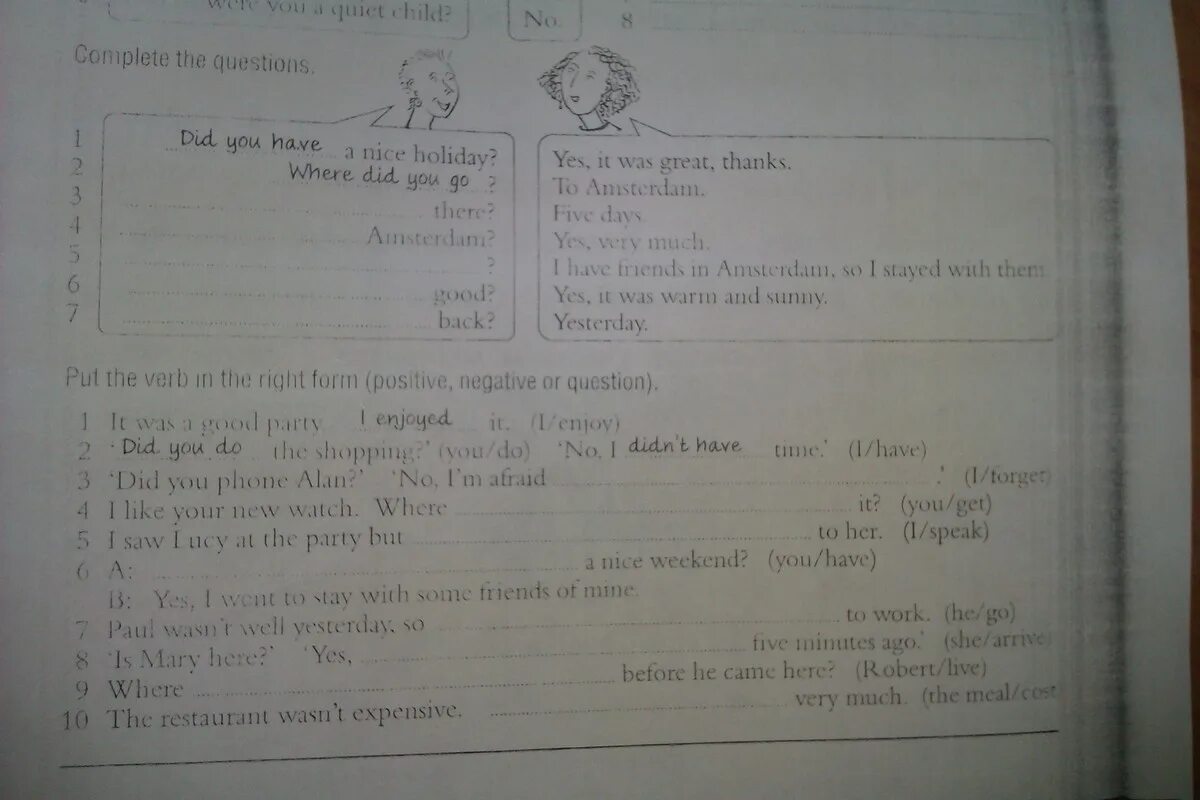 were you a quiet child?
No.
8
Complete the questions.
1 Did you have a nice holiday? Yes, it was great, thanks.
2 Where did you go ? To Amsterdam.
3 there? Five days.
4 Amsterdam? Yes, very much.
5 ? I have friends in Amsterdam, so I stayed with them
6 good? Yes, it was warm and sunny.
7 back? Yesterday.
Put the verb in the right form (positive, negative or question).
1 It was a good party I enjoyed it. (I/enjoy)
2 'Did you do the shopping?' (you/do) 'No, I didn't have time.' (I/have)
3 'Did you phone Alan?' 'No, I'm afraid .' (I/forget)
4 I like your new watch. Where it? (you/get)
5 I saw Lucy at the party but to her. (I/speak)
6 A: a nice weekend? (you/have)
B: Yes, I went to stay with some friends of mine.
7 Paul wasn't well yesterday, so to work. (he/go)
8 'Is Mary here?' 'Yes, five minutes ago.' (she/arrive
9 Where before he came here? (Robert/live)
10 The restaurant wasn't expensive. very much. (the meal/cost